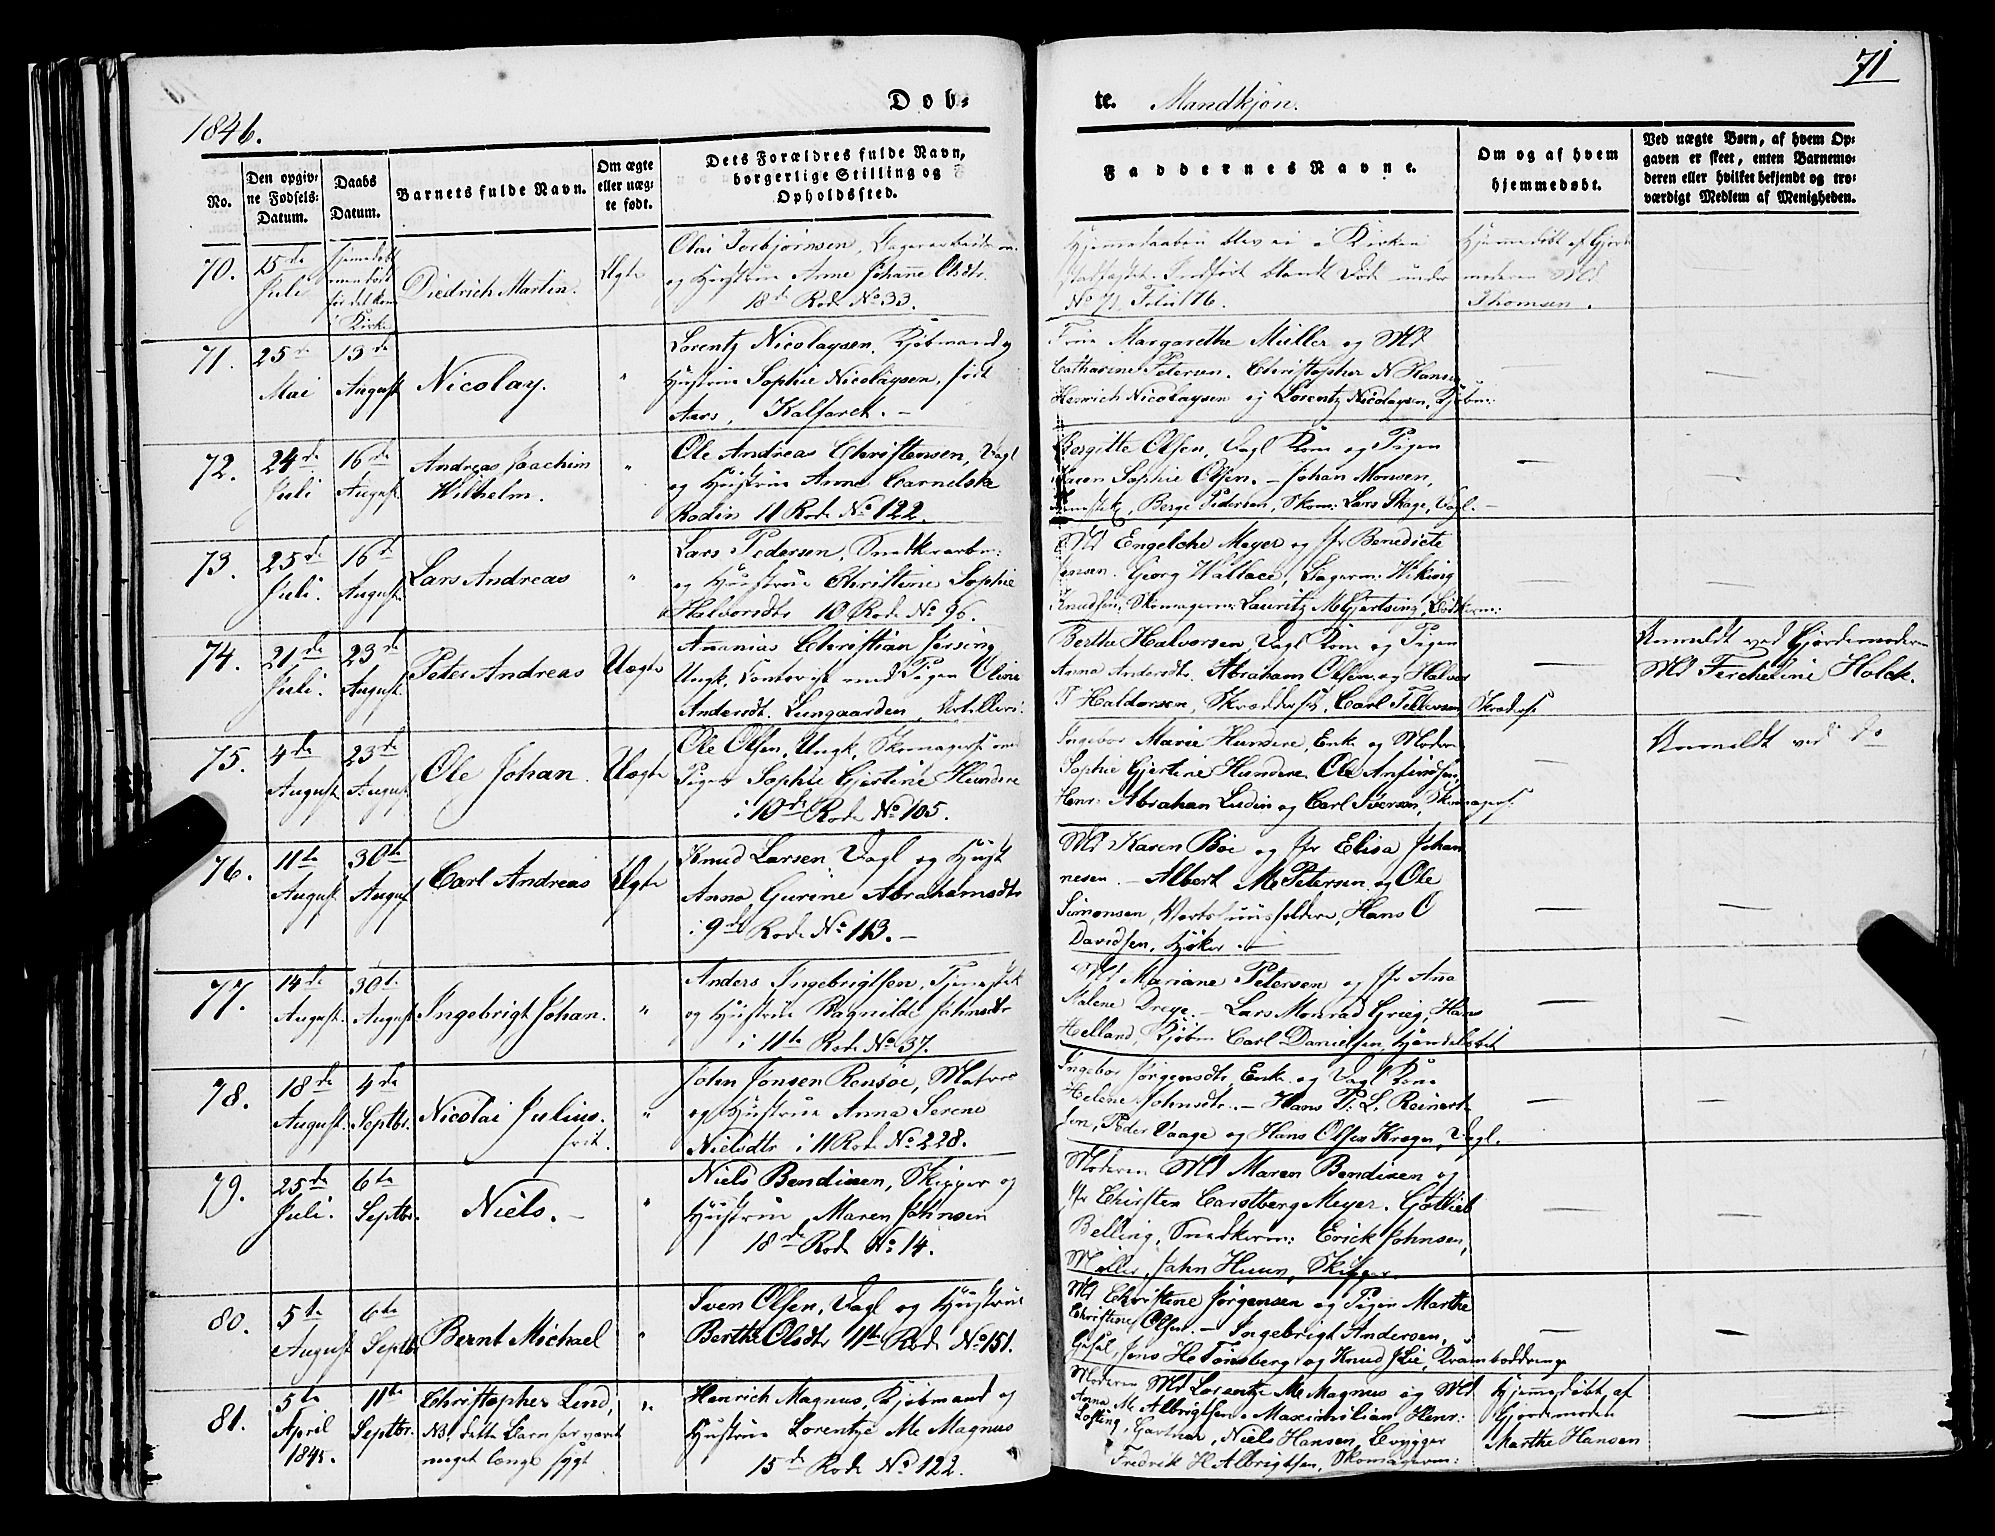 71
Døb-
te. Mandkjøn.
1846.
No.
Den opgiv-
ne Fødsels-
Datum.
Daabs
Datum.
Barnets fulde Navn.
Om ægte
eller uæg-
te født.
Dets Forældres fulde Navn,
borgerlige Stilling og
Opholdssted.
Faddernes Navne.
Om og af hvem
hjemmedøbt.
Ved uægte Børn, af hvem Op-
gaven er skeet, enten Barnemo-
deren eller hvilket bekjendt og tro-
værdigt Medlem af Menigheden.
70.
15de
Juli
Hjemedøbt
men død
før det kom
i Kirke
Diedrich Martin.
Ægte
Olai Torbjørnsen, Lagerarbeider
og Hustrue Anne Johanne Olsdtr
18de Rode No 33.
Hjemedaaben blev ei i Kirken
stadfæstet. Indført blandt Døde under
No 71 Folii 176.
Hjemedøbt af Gjord
moderen Md
Thomsen.
71.
25de
Mai
13de
August
Nicolay.
"
Lorentz Nicolaysen, Kjøbmand og
Hustrue Sophie Nicolaysen, født
Aars, Kalfaret. -
Frue Margarethe Müller og Md
Catharine Petersen. Christopher N Hansen
Henrich Nicolaysen og Lorentz Nicolaysen, Kjøbm:
72.
24de
Juli
16de
August
Andreas Joachim
Wilhelm.
"
Ole Andreas Christensen, Vagl
og Hustrue Anne Carnelske
Rodin 11 Rode No 122.
Bergitte Olsen, Vagl Kone og Pigen
Karen Sophie Olsen. - Johan Monsen,
Berge Pedersen, Skom: Lars Skage, Vagl. -
73.
25de
Juli.
16de
August
Lars Andreas
"
Lars Pedersen, Snedkerarbm:
og Hustrue Christine Sophie
Halvorsdtr 10 Rode No 96.
Md Engelche Meyer og Jfr Benedicte
Jensen. Georg Wallace, Lagerm: Wiking
Knudsen, Skomagerm: Lauritz M Gjertsing, Bødkerm:
74.
21de
Juli.
23de
August
Peter Andreas
Uægte
Ananias Christian Jersing
Ungk. Contorist med Pigen Oline
Andersdt. Lungaarden Artilleri:
Berthe Halvorsen, Vagl Kone og Pigen
Anna Andersdt. Abraham Olsen og Halvor
T Haldorsen, Skræddersv, Carl Tellevsen, Skrædersv
Anmeldt ved Gjordemoderen
Md Fercheline Holck.
75.
4de
August
23de
August
Ole Johan.
Uægte
Ole Olsen, Ungk. Skomagersv med
Pigen Sophie Gjertine Hundere
i 10de Rode No 105.
Ingebor Marie Hundere, Enke og Moderen
Sophie Gjertine Hundere. Ole Anfindsen,
Henr: Abrahan Ludin og Carl Siversen, Skomagersv.
Anmeldt ved Do
76.
11te
August
30te
August
Carl Andreas
Ægte
Knud Larsen, Vagl og Hust
Anna Gurine Abrahamsdtr
i 9de Rode No 113. -
Md Karen Böe og Jfr Elisa Johan
nesen. - Albert M Petersen og Ole
Simonsen, Vertshuusholdere, Hans O
Davidsen, Høker. -
77.
14de
August.
30te
August
Ingebrigt Johan.
"
Anders Ingebrigtsen, Tjenestek
og Hustrue Ragnilde Johnsdtr
i 11te Rode No 37.
Md Mariane Petersen og Jfr Ana
Malene Dreye. - Lars Monrad Grieg, Hans
Helland, Kjøbm Carl Danielsen, Handelsbet
78.
18de
August.
4de
Septbr.
Nicolai Julius.
"
John Jonsen Rensøe, Matros
og Hustrue Anna Serene
Nielsdtr i 11 Rode No 228.
Ingebor Jørgensdtr, Enke og Vagl Kone
Helene Johnsdtr. - Hans P: L. Reinert-
sen, Peder Vaage og Hans Olsen Krøger, Vagl.
79.
25de
Juli.
6te
Septbr.
Niels. -
"
Niels Bendixen, Skipper og
Hustrue, Maren Johnsen
18de Rode No 14.
Moderen Md Maren Bendixen og
Jfr Christen Carstberg Meyer. Gottlieb
Belling, Snedkerm: Erick Johnsen,
Møller, John Huun, Skipper.
80.
5te
August
6te
Septbr
Bernt Michael
"
Sven Olsen, Vagl og Hustrue
Berthe Olsdtr 11te Rode No 151.
Md Christene Jørgensen og Pigen Marthe
Christine Olsen. - Ingebrigt Andersen,
Jens H Tønsberg og Knud J Lie, Kramboddreng
81.
5te
April
1845.
11te
Septbr.
Christopher Lind,
NB. dette Barn har været
meget længe sygt.
"
Henrich Magnus, Kjøbmand og
Hustrue Lorentze M. Magnus
15de Rode No 122.
Moderen Md Lorentze M. Magnus og Md
Anna M. Albrigtsen. Maximilian Henr:
Løfting, Gartner, Niels Hansen, Brygger
Fredrik H. Albrigtsen, Skomagerm:
Hjemedøbt af
Gjordemoder
Marthe Hansen